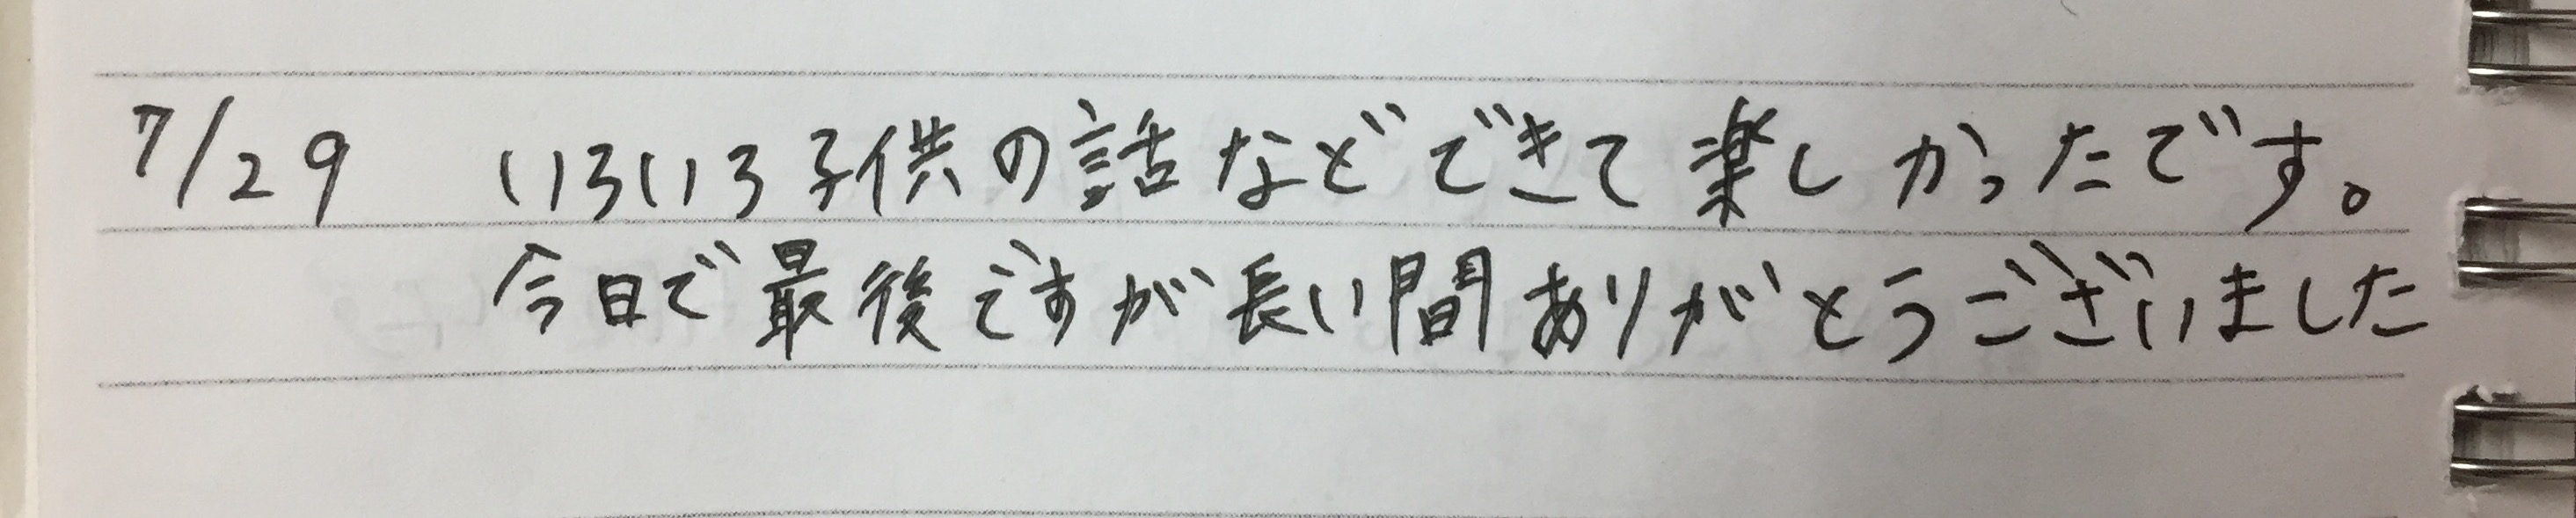 7/29 いろいろ子供の話などできて楽しかったです。
今日で最後ですが長い間ありがとうございました